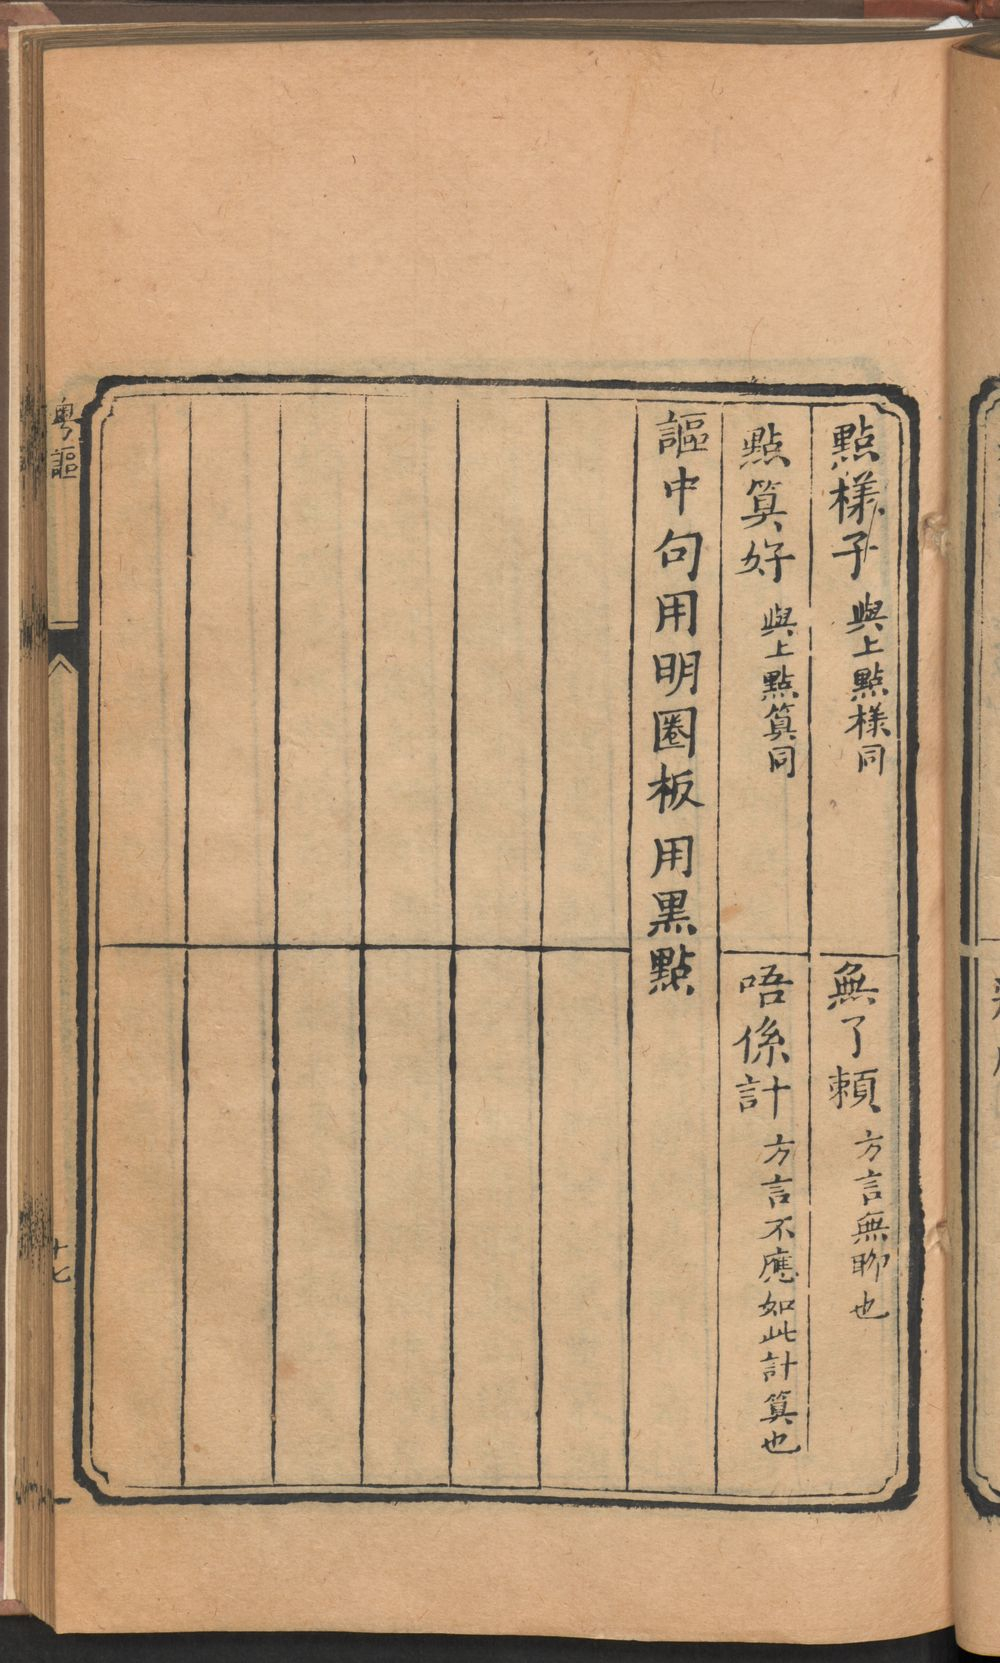 點樣子 與上點樣同
無了賴 方言無聊也
點算好 與上點算同
唔係計 方言不應如此計算也
謳中句用明圈板用黑點
粵謳
十七